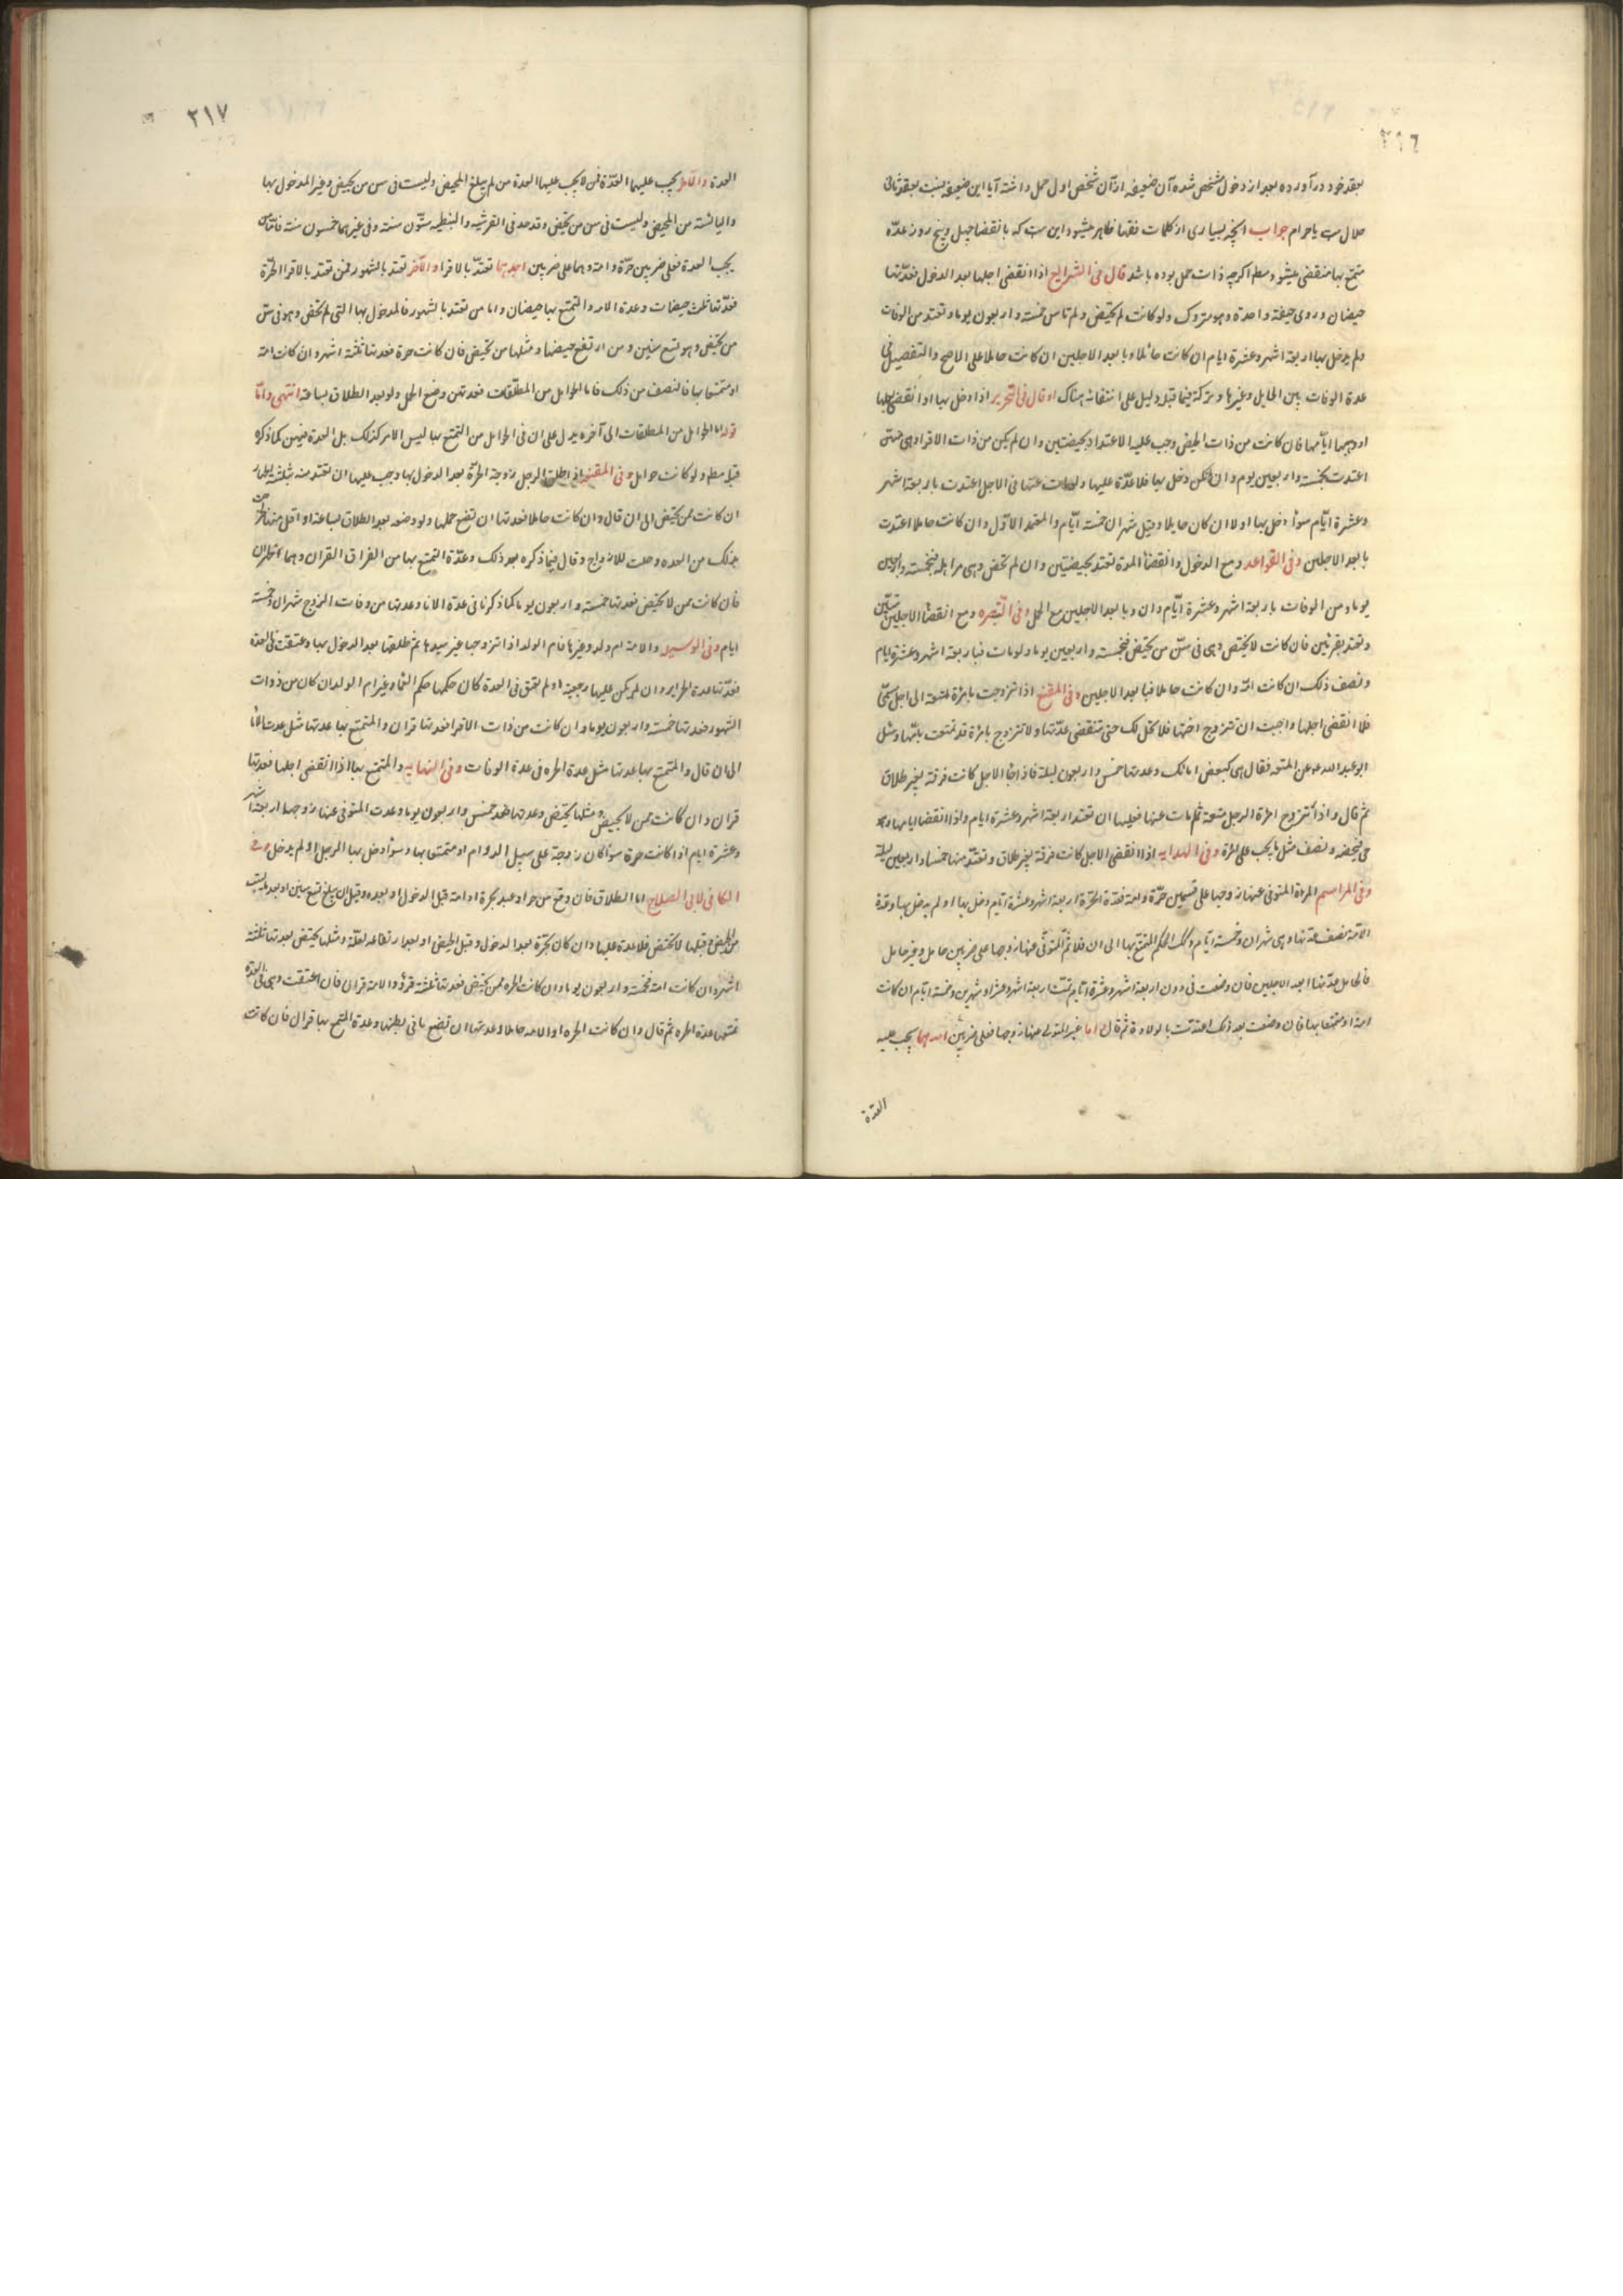 ٢١٦
بعقد خود در آورده بعد از دخول مشخص شده آن ضعیفه از آن شخص اول حمل داشته آیا این ضعیفه بنسبت بعقد ثانی
حلال است یا حرام جواب آنچه از بسیاری از کلمات فقها ظاهر میشود این است که بانقضا چهل و پنج روز عدّه
متمتع بها منقضی میشود مطلقا اگرچه ذات حمل بوده باشد قال فی الشرایع اذا انقضی اجلها بعد الدخول فعدّتها
حیضتان و روی حیضة واحدة وهو متروک ولو کانت لم تحیض ولم تیأس خمسة واربعون یوما وتعتد من الوفات
ولم یدخل بها اربعة اشهر وعشرة ایام ان کانت حائلا وبابعد الاجلین ان کانت حاملا علی الاصح والتفصیل فی
عدة الوفات بین الحایل وغیرها وترکه فیما قبل دلیل علی انتفائه هناک وقال فی التحریر اذا دخل بها وانقضی اجلها
او وهبها ایّامها فان کانت من ذات الحیض وجب علیه الاعتداد بحیضتین وان لم یکن من ذات الاقراء وهی
اعتدت بخمسة واربعین یوم وان لم یکن دخل بها فلا عدّة علیها ولو مات عنها فی الاجل اعتدت باربعة اشهر
وعشرة ایّام سواء دخل بها او لا ان کان حایلا وقیل شهران خمسة ایّام والمعتمد الاوّل وان کانت حاملا اعتدت
بابعد الاجلین وفی القواعد ومع الدخول وانقضاء المدة تعتد بحیضتین وان لم تحض وهی من اهله فبخمسة واربعین
یوما ومن الوفات باربعة اشهر وعشرة ایّام وان وبابعد الاجلین مع الحمل وفی التبصره ومع انقضاء الاجلین
وتعتد بقرئین فان کانت لا تحیض وهی فی سنّ من تحیض فبخمسة واربعین یوما ولو مات فباربعة اشهر وعشرة ایام
ونصف ذلک ان کانت امّة وان کانت حاملا فبابعد الاجلین وفی المقنع اذا تزوجت بامرة متعة الی اجل مسمّی
فلما انقضی اجلها واحببت ان تتزوج اختها فلا تحل لک حتی تنقضی عدّتها ولا تتزوج بامرة قد تمتعت بامّها وسئل
ابو عبد الله ع عن المتعه فقال هی کبعض امائک وعدتها خمس واربعون لیلة فاذا جاء الاجل کانت فرقة بغیر طلاق
ثم قال واذا تزوج امرة الرجل متعة ثم مات عنها فعلیها ان تعتد اربعة اشهر وعشرة ایام واذا انقضا ایامها وهو
حی فبحیضة ونصف مثل ما یجب علی الامة وفی الهدایه اذا انقضی الاجل کانت فرقة بغیر طلاق وتعتد منها خمسا واربعین لیلة
وفی المراسم المرأة المتوفی عنها زوجها علی قسمین حرّة وامة فعدّة الحرّة اربعة اشهر وعشرة ایام دخل بها او لم یدخل بها وعدة
الامّة نصف عدّتها وهی شهران وخمسة ایّام وکذلک الحکم المتمتع بها الی ان قال ثمّ المتوفّی عنها زوجها علی ضربین حامل وغیر حامل
فالحامل عدّتها ابعد الاجلین فان وضعت فی دون اربعة اشهر وعشرة ایّام تممّت اربعة اشهر وعشرا او شهرین وخمسة ایّام ان کانت
امة او متمتعا بها فان وضعت بعد ذلک اعتدت بالولادة ثم قال اما غیر المتوفی عنها زوجها فعلی ضربین احدهما یجب علیه
العدّة
٢١٧
العدة والآخر یجب علیها العدّة فمن لا یجب علیها العدة من لم یبلغ المحیض ولیست فی سن من تحیض وغیر المدخول بها
والیائسة من المحیض ولیست فی سن من تحیض وقد حد فی القرشیه والنبطیه ستّون سنة وفی غیرهما خمسون سنة فاما من
یجب العدة فعلی ضربین حرّة وامة وهما علی ضربین احدهما تعتدّ بالاقراء والآخر تعتد بالشهور فمن تعتد بالاقراء الحرّة
فعدّتها ثلث حیضات وعدة الامه والمتمتع بها حیضتان واما من تعتد بالشهور فالمدخول بها التی لم تحض وهو فی سن
من تحیض وهو تسع سنین ومن ارتفع حیضها ومثلها من تحیض فان کانت حرة فعدتها ثلثة اشهر وان کانت امة
او متمتعا بها فالنصف من ذلک فاما الحوامل من المطلّقات فعدتهن وضع الحمل ولو بعد الطلاق بساعة انتهی وامّا
قوله اما الحوامل من المطلقات الی آخره یدل علی ان فی الحوامل من التمتع بها لیس الامر کذلک بل العدة فیهن کما ذکره
قبل مطلقا ولو کانت حوامل وفی المقنعه اذا طلق الرجل زوجة الحرّة بعد الدخول بها وجب علیها ان تعتد منه بثلثة اطهار
ان کانت ممن تحیض الی ان قال وان کانت حاملا فعدتها ان تضع حملها ولو وضعه بعد الطلاق بساعة او اقل منها خرجت
بذلک من العده وحلت للازواج وقال فیما ذکره بعد ذلک وعدّة التمتع بها من الفراق القران وهما طهران
فان کانت ممن لا تحیض فعدتها خمسة واربعون یوما کما ذکرنا فی عدّة الاماء وعدتها من وفات الزوج شهران وخمسة
ایام وفی الوسیله والامة ام ولد وغیرها فام الولد اذا تزوجها غیر سیدها ثم طلقها بعد الدخول بها وعتقت فی العدة
فعدّتها عدة الحرایر وان لم یکن علیها رجعیة او لم تعتق فی العدة کان حکمها حکم الاماء وغیر ام الولد ان کان من ذوات
الشهور فعدتها خمسة واربعون یوما وان کانت من ذات الاقراء فعدتها قرآن والمتمتع بها عدتها مثل عدة الاماء
الی ان قال والمتمتع بها عدتها مثل عدة الحره فی عدة الوفات وفی النهایه والمتمتع بها اذا انقضی اجلها فعدتها
قرآن وان کانت ممن لا تحیض ومثلها تحیض وعدتها خمس واربعون یوما وعدت المتوفی عنها زوجها اربعة اشهر
وعشرة ایام اذا کانت حرة سواء کان زوجة علی سبیل الدوام او متمتعا بها وسواء دخل بها الرجل او لم یدخل وفی
الکافی لابی الصلاح اما الطلاق فان وقع من حر او عبد بحرة او امة قبل الدخول او بعده وقبل ان یبلغ تسع سنین او بعد
من الحیض ومثلها لا تحیض فلا عدة علیها وان کان بحرّة بعد الدخول وقبل الحیض او بعد ارتفاعه لعلّة ومثلها تحیض فعدتها ثلثة
اشهر وان کانت امة فخمسة واربعون یوما وان کانت الحره ممن تحیض فعدتها ثلثة قروء والامة قرآن فان اعتقت وهی فی العدة
تممتها عدة الحره ثم قال وان کانت الحره او الامه حاملا وعدتها ان تضع ما فی بطنها وعدة المتمتع بها قرآن فان کانت